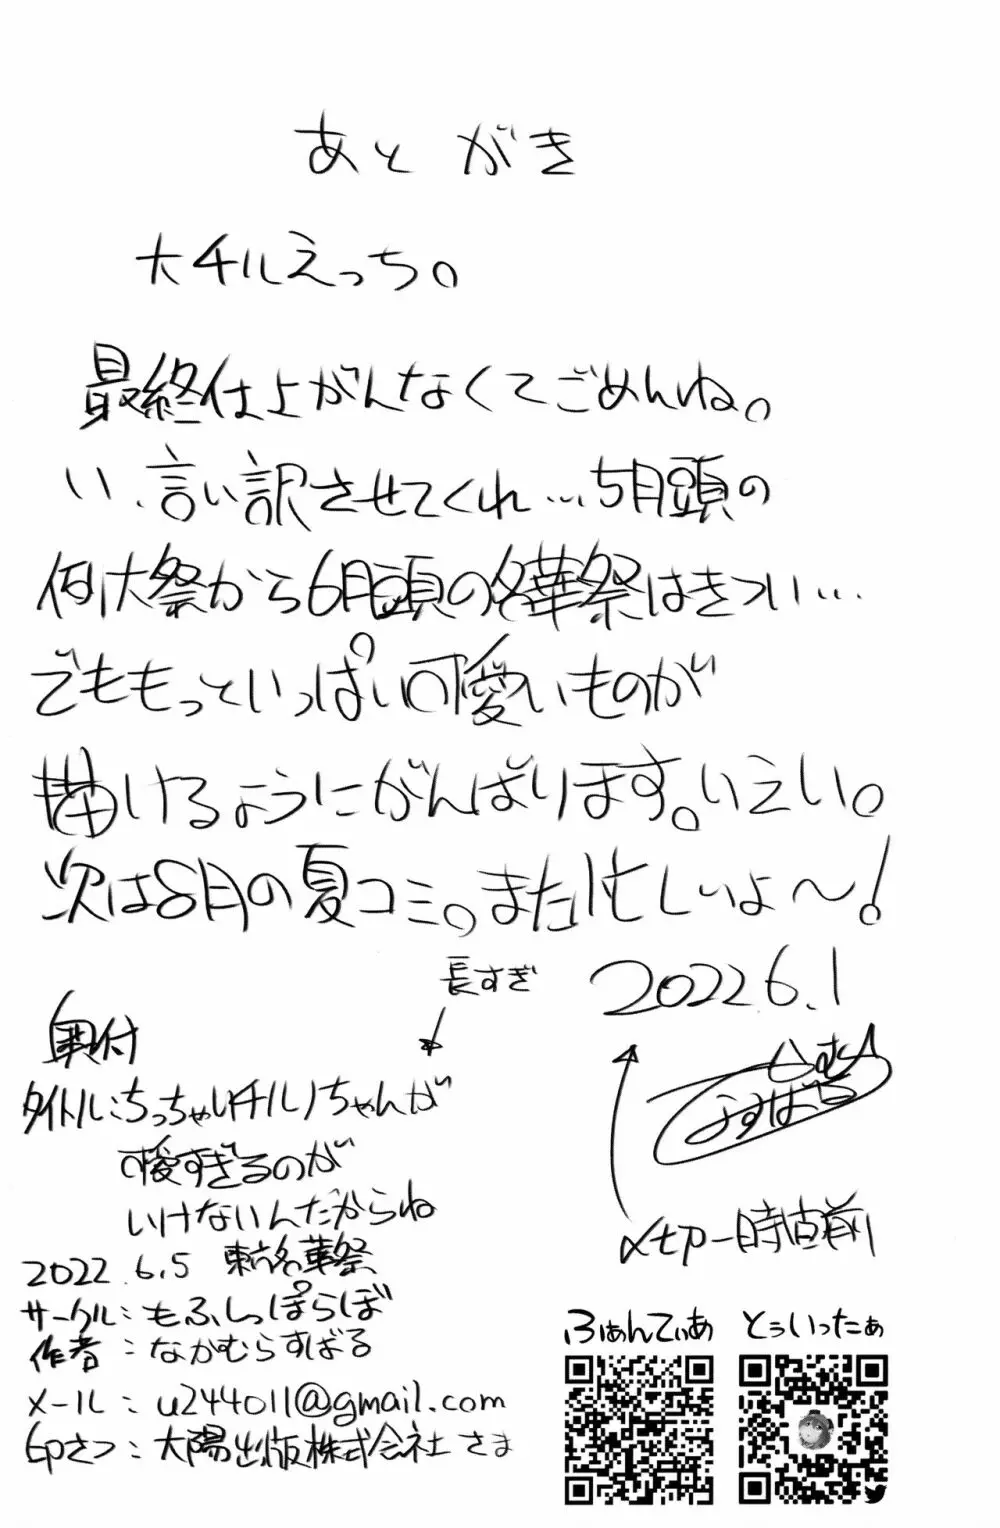 あとがき
大チルえっち。
最終仕上がんなくてごめんね。
い、言い訳させてくれ…5月頭の
例大祭から6月頭の名華祭はきつい…
でももっといっぱい可愛いものが
描けるようにがんばります。いえい。
次は8月の夏コミ。また忙しいよ〜!
2022 6.1
長すぎ
なかむら
すばる
〆切一時直前
奥付
タイトル:ちっちゃいチルノちゃんが
可愛すぎるのが
いけないんだからね
2022.6.5 東方名華祭
サークル:もふしっぽらぼ
作者:なかむらすばる
メール:u244011@gmail.com
印さつ:太陽出版株式会社さま
ふぁんてぃあ
とぅいったぁ